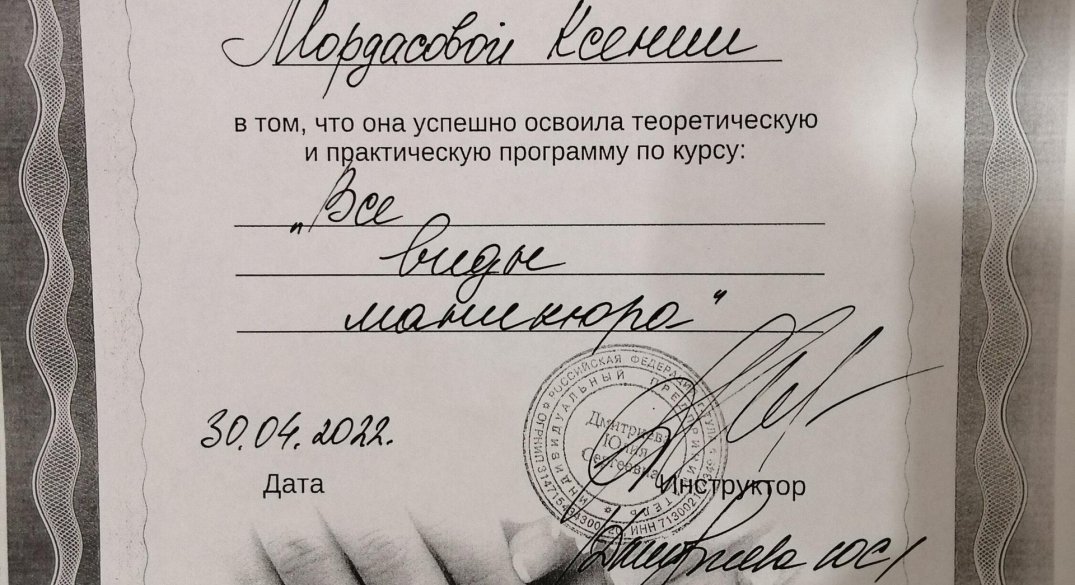 Мордасовой Ксении
в том, что она успешно освоила теоретическую
и практическую программу по курсу:
„Все
виды
маникюра“
РОССИЙСКАЯ ФЕДЕРАЦИЯ
ИНДИВИДУАЛЬНЫЙ ПРЕДПРИНИМАТЕЛЬ
Дмитриева
Юлия
Сергеевна
30.04.2022.
Дата
Инструктор
Дмитриева ЮС